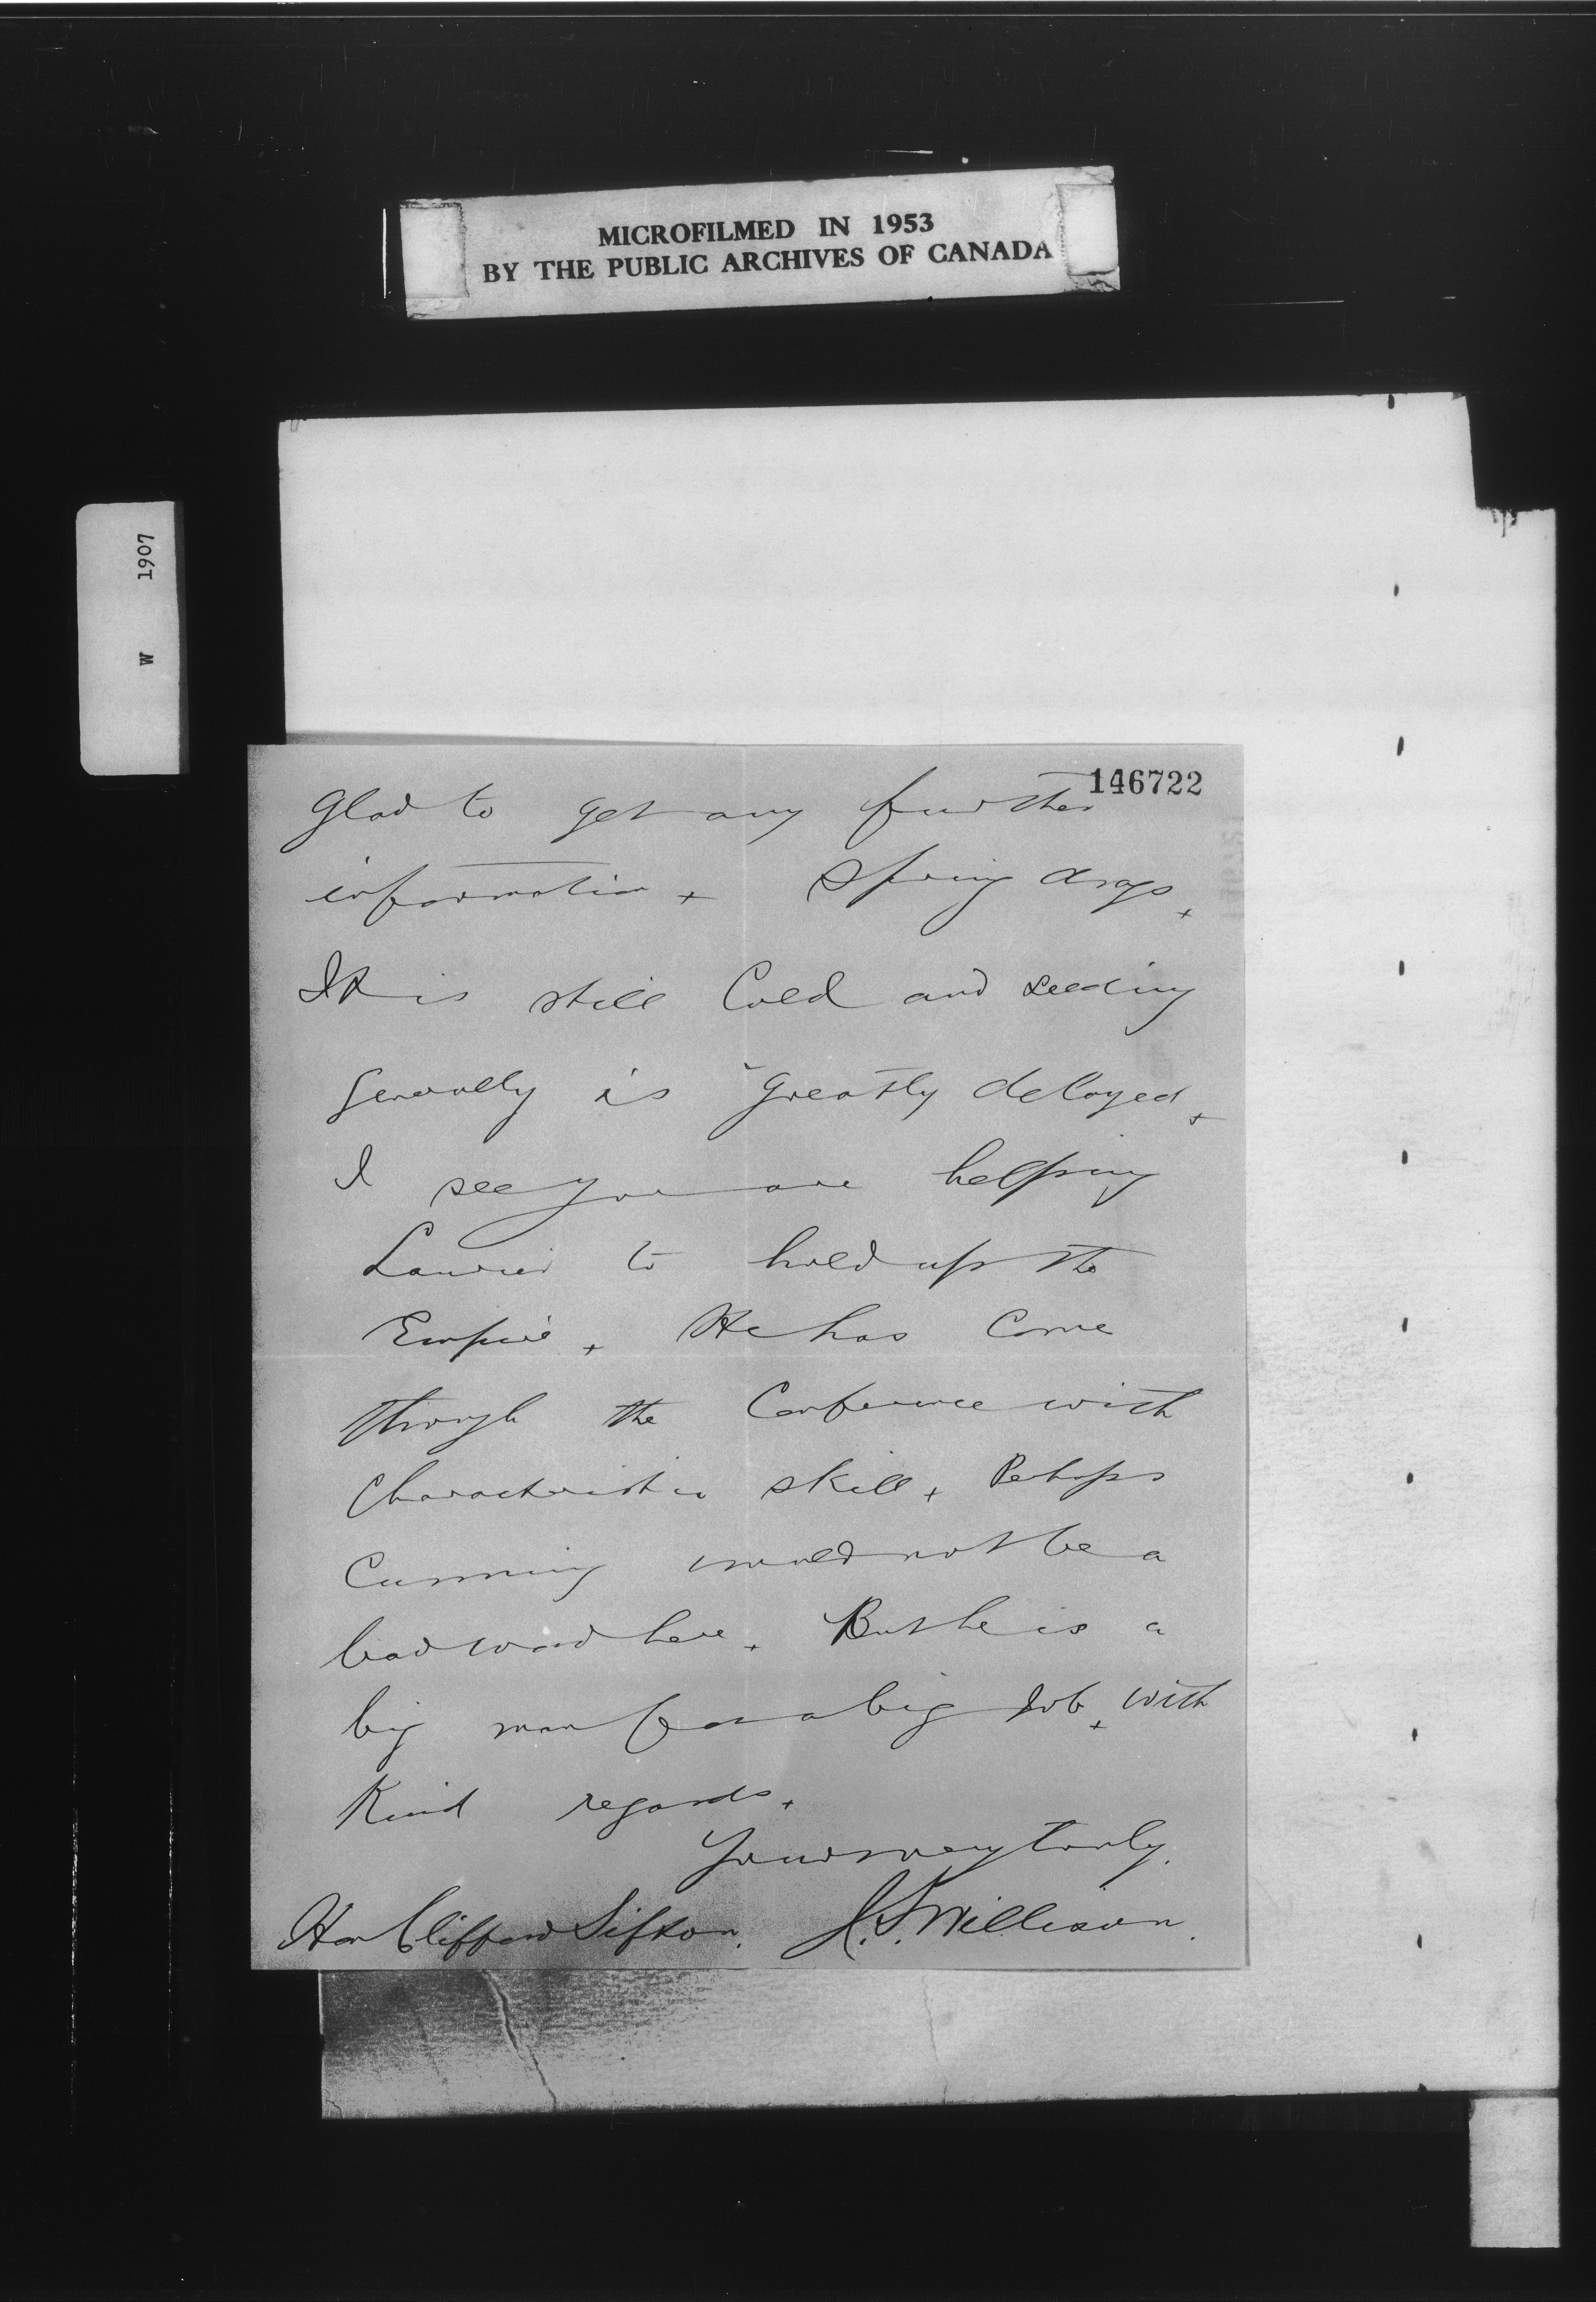 MICROFILMED IN 1953
BY THE PUBLIC ARCHIVES OF CANADA
W 1907
146722
Glad to get any further
information + Spring drags +
It is still Cold and seeding
generally is greatly delayed +
I see you are helping
Laurier to hold up the
Empire + He has come
through the Conference with
characteristic skill + Perhaps
Cunning would not be a
bad word here + But he is a
big man for a big Job + With
Kind regards +
Yours very truly.
Hon Clifford Sifton. J.S. Willison.